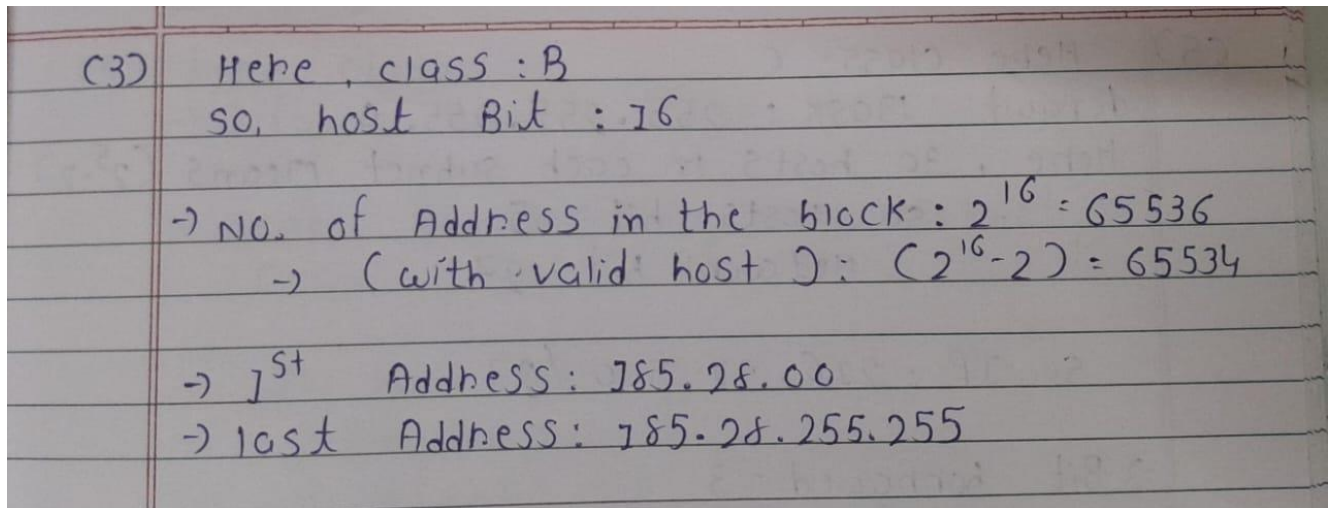 (3) Here, class : B
so, host Bit : 16
-> No. of Address in the block : 2^16 = 65536
-> (with valid host) : (2^16-2) = 65534
-> 1st Address : 185.28.00
-> last Address : 185.28.255.255